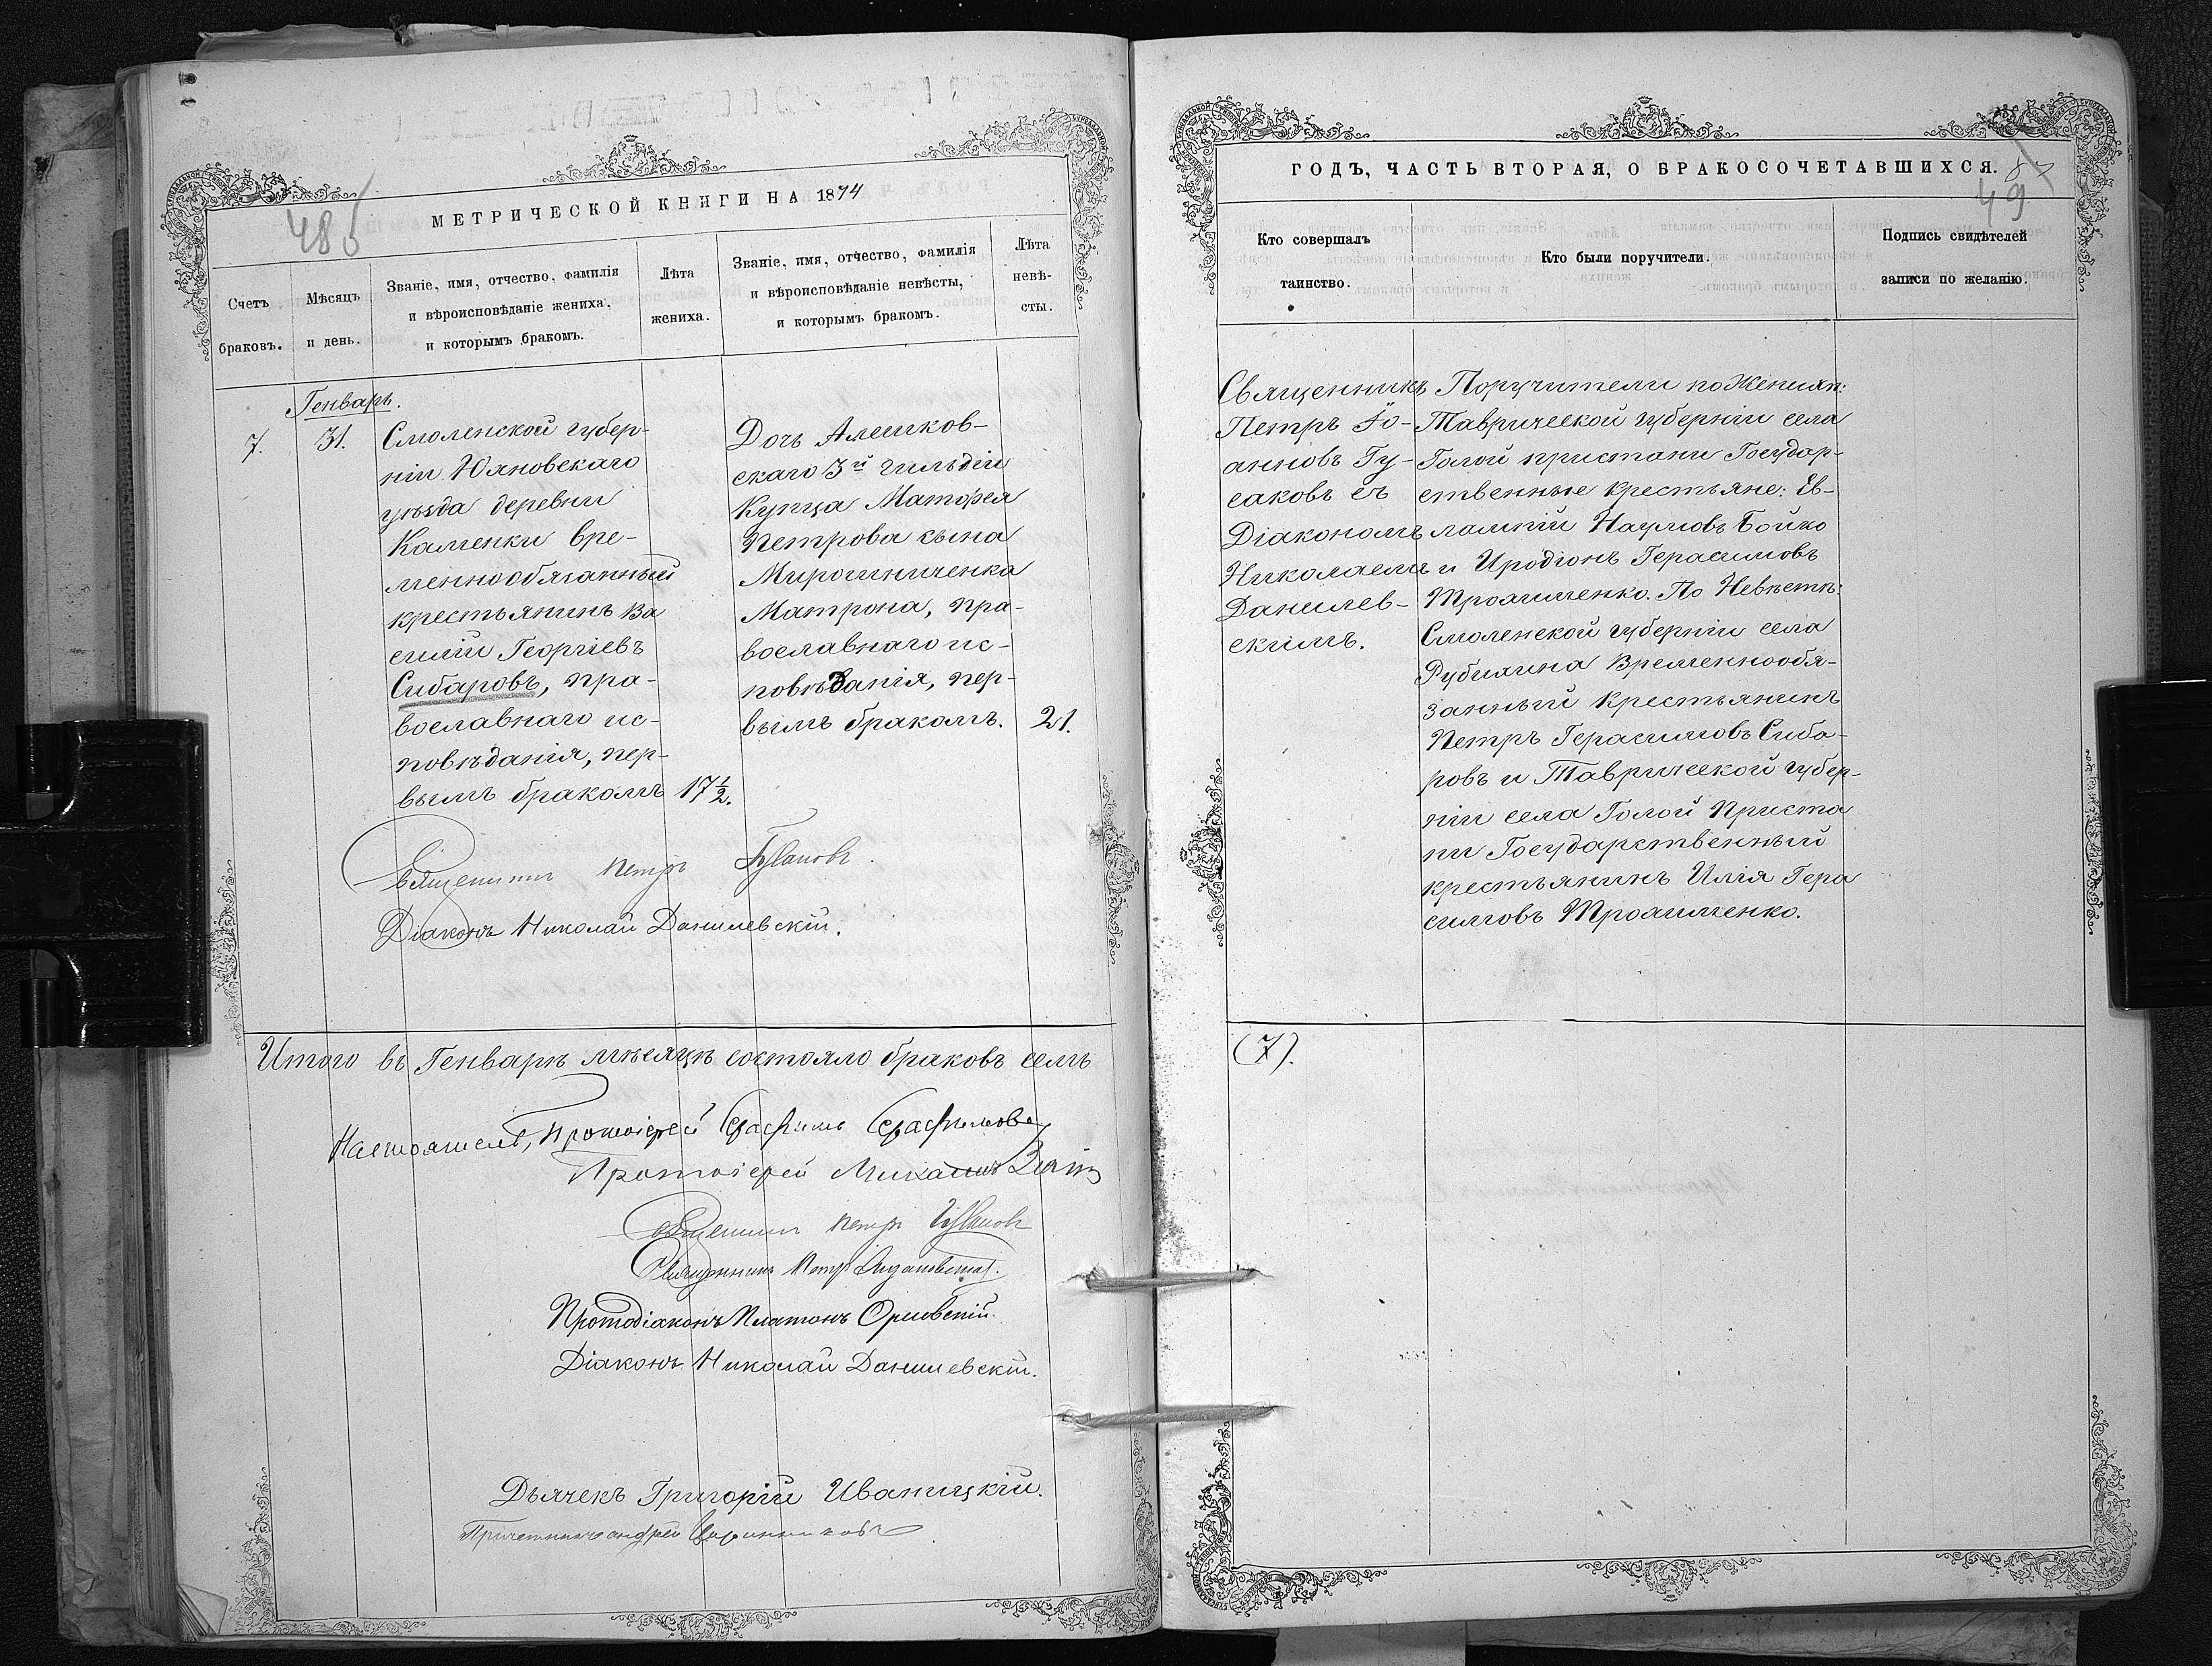 МЕТРИЧЕСКОЙ КНИГИ НА 1874
48
Счетъ браковъ.
Мѣсяцъ и день.
Званіе, имя, отчество, фамилія
и вѣроисповѣданіе жениха,
и которымъ бракомъ.
Лѣта
жениха.
Званіе, имя, отчество, фамилія
и вѣроисповѣданіе невѣсты,
и которымъ бракомъ.
Лѣта
невѣ-
сты.
Генварь.
7.
31.
Смоленской губер-
ніи Юхновскаго
уѣзда деревни
Каменки вре-
меннообязанный
крестьянинъ Ва
силій Георгіевъ
Сибаровъ, пра-
вославнаго ис-
повѣданія, пер-
вымъ бракомъ
17½.
Дочь Алешков-
скаго 3й гильдіи
Купца Матфея
Петрова сына
Мирошниченка
Матрона, пра-
вославнаго ис-
повѣданія, пер-
вымъ бракомъ.
21.
Священникъ Петръ Гусаковъ.
Діаконъ Николай Данилевскій.
Итого въ Генварѣ мѣсяцѣ состояло браковъ семь
Настоятель, Протоіерей Серафимъ Серафимовъ
Протоіерей Михаилъ
Священникъ Петръ Гусаковъ
Священникъ Петръ
Протодіаконъ Платонъ Орловскій.
Діаконъ Николай Данилевскій.
Дьячекъ Григорій Иваницкій.
Причетникъ Андрей
ГОДЪ, ЧАСТЬ ВТОРАЯ, О БРАКОСОЧЕТАВШИХСЯ.
49
Кто совершалъ
таинство.
Кто были поручители.
Подпись свидѣтелей
записи по желанію.
Священникъ
Петръ Іо-
анновъ Гу-
саковъ съ
Діакономъ
Николаемъ
Данилев-
скимъ.
Поручители по Жених:
Таврической губерніи села
Голой пристани Государ-
ственные крестьяне: Ев-
лампій Наумовъ Бойко
и Иродіонъ Герасимовъ
Троашменко. По Невѣстѣ:
Смоленской губерніи села
Рубихина Временнообя-
занный крестьянинъ
Петръ Герасимовъ Сиба-
ровъ и Таврической губер-
ніи села Голой Приста
ни Государственный
крестьянинъ Илія Гера
симовъ Троашменко.
(7).